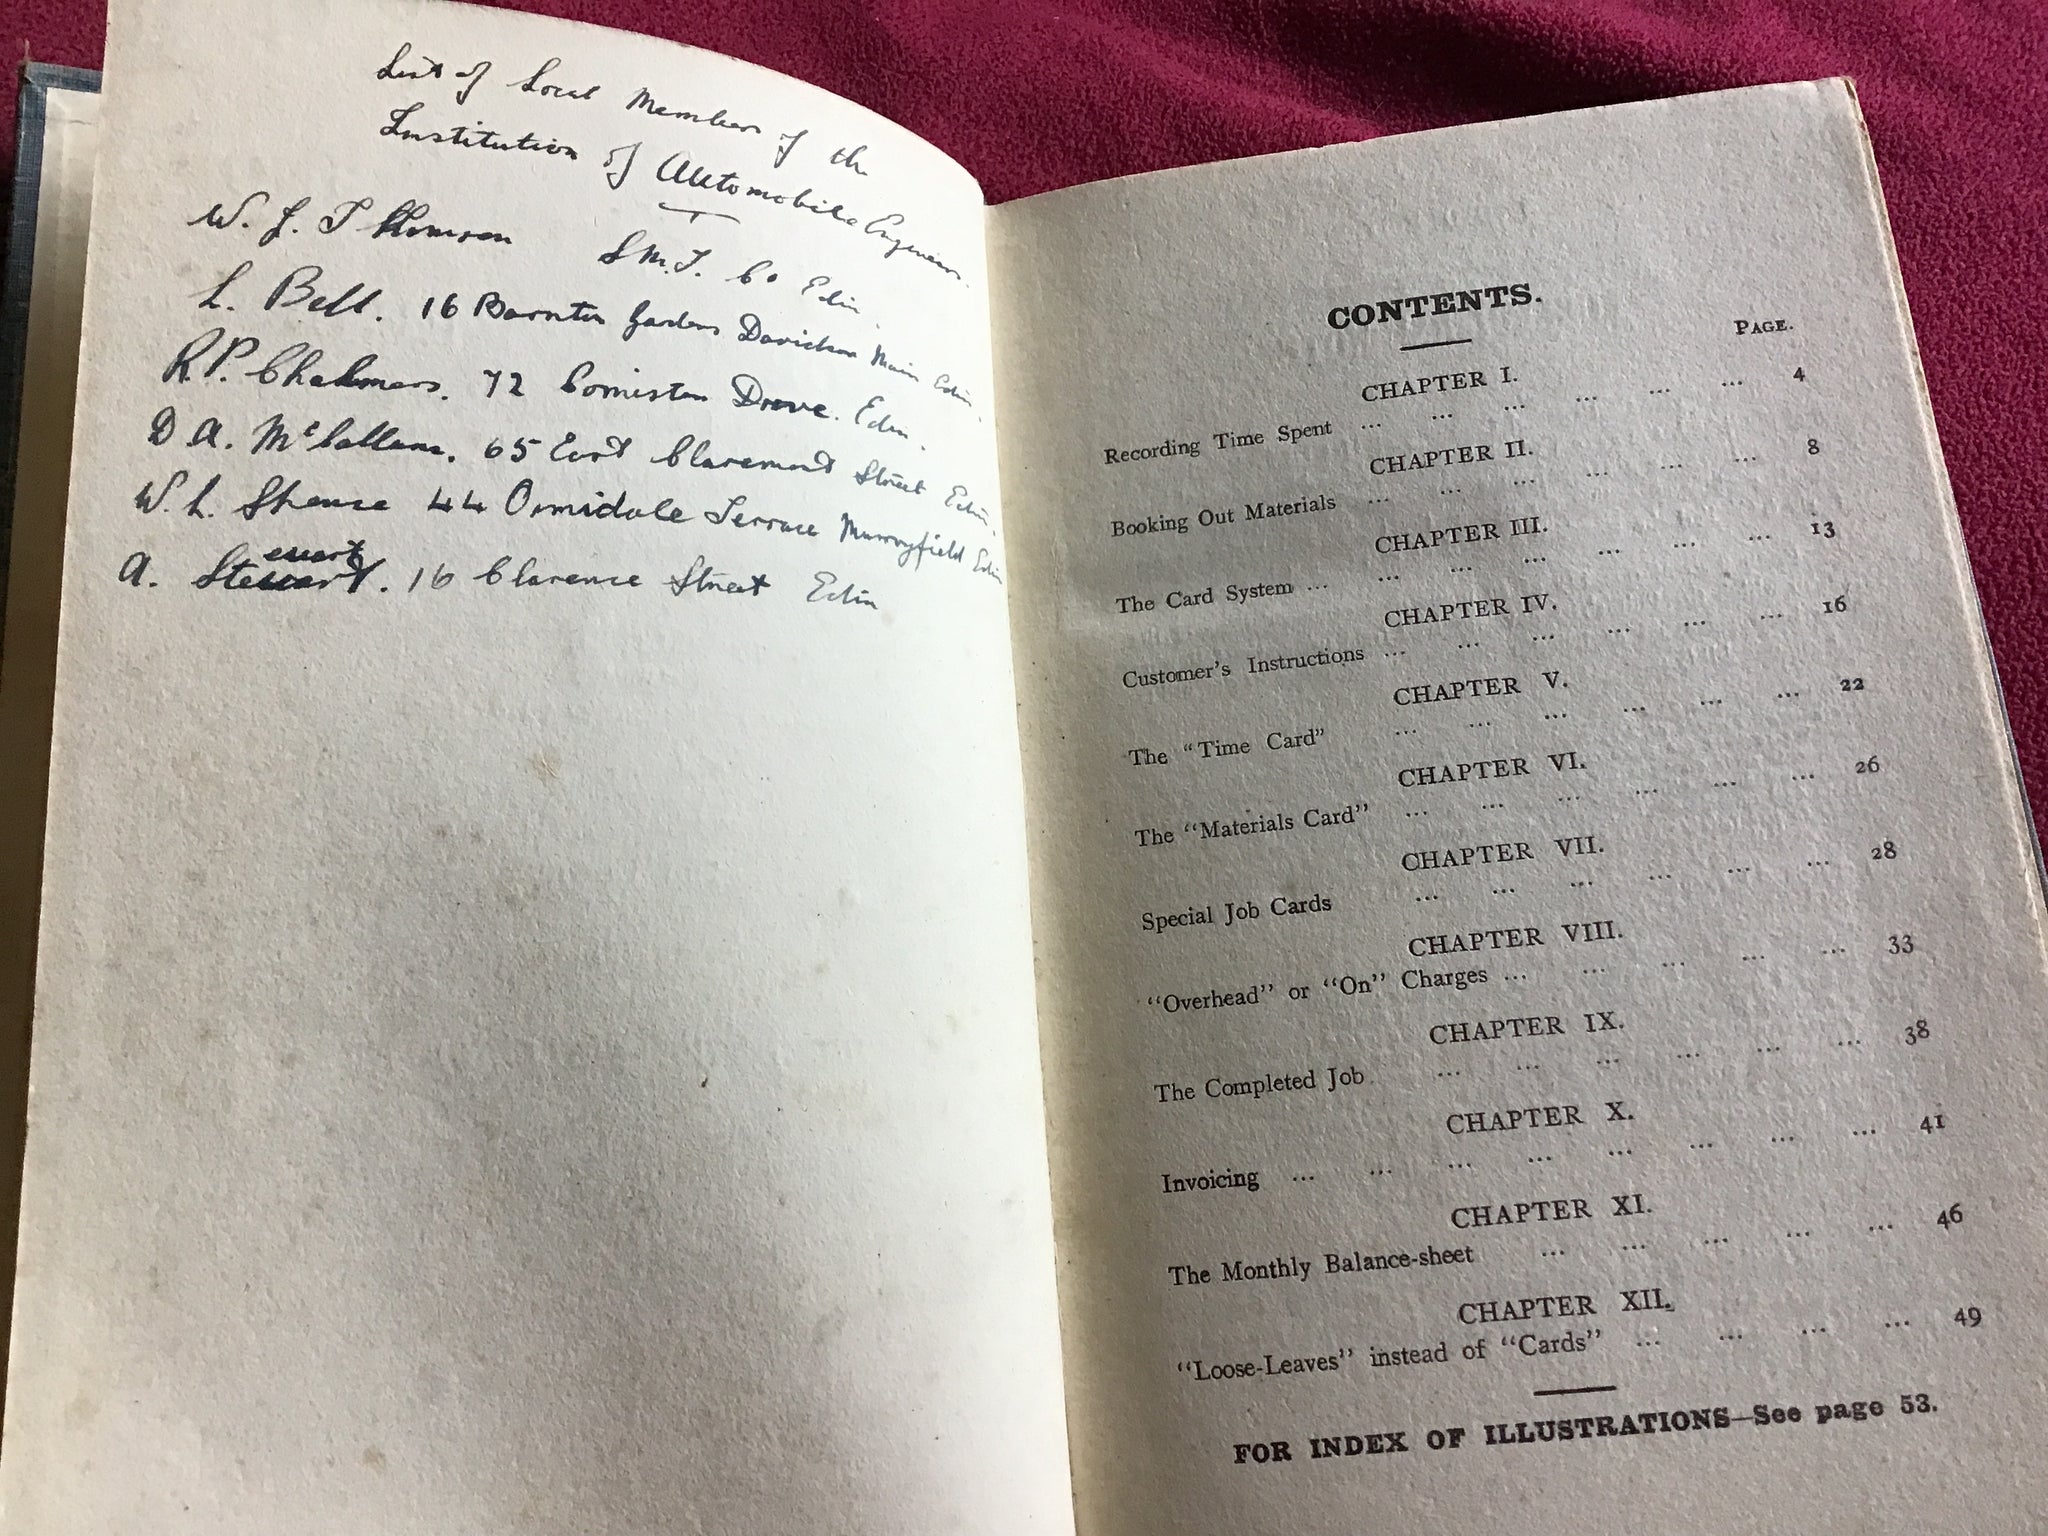 List of Local Members of the
Institution of Automobile Engineers.
W. J. Thomson S.M.T. Co Edin.
L. Bell. 16 Barnton Gardens Davidson Main Edin.
R.P. Chalmers. 72 Comiston Drive. Edin.
D A. McCallum. 65 East Claremont Street Edin.
W. L. Spence 44 Ormidale Terrace Murrayfield Edin
ewart
A. Stewart. 16 Clarence Street Edin
CONTENTS.
PAGE.
CHAPTER I.
Recording Time Spent ... ... ... ... ... ... 4
CHAPTER II.
Booking Out Materials ... ... ... ... ... ... 8
CHAPTER III.
The Card System ... ... ... ... ... ... ... 13
CHAPTER IV.
Customer's Instructions ... ... ... ... ... ... 16
CHAPTER V.
The "Time Card" ... ... ... ... ... ... 22
CHAPTER VI.
The "Materials Card" ... ... ... ... ... ... 26
CHAPTER VII.
Special Job Cards ... ... ... ... ... ... 28
CHAPTER VIII.
"Overhead" or "On" Charges ... ... ... ... ... 33
CHAPTER IX.
The Completed Job ... ... ... ... ... ... 38
CHAPTER X.
Invoicing ... ... ... ... ... ... ... ... 41
CHAPTER XI.
The Monthly Balance-sheet ... ... ... ... ... 46
CHAPTER XII.
"Loose-Leaves" instead of "Cards" ... ... ... ... 49
FOR INDEX OF ILLUSTRATIONS—See page 53.